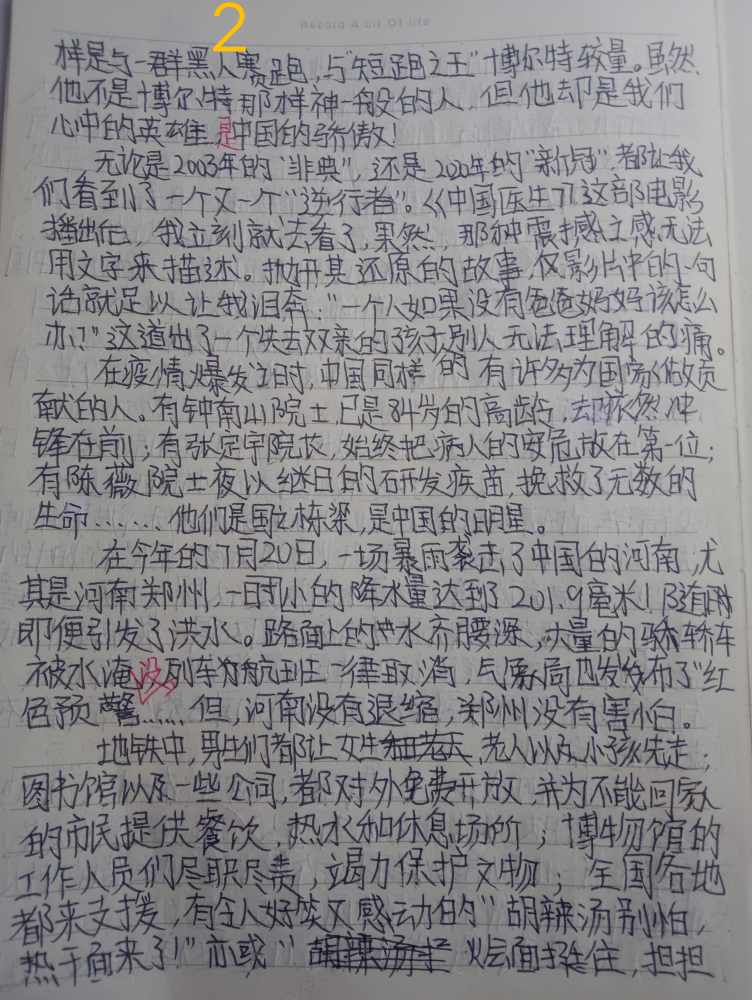 2
样是与一群黑人赛跑，与"短跑之王"博尔特较量。虽然
他不是博尔特那样神一般的人，但他却是我们
心中的英雄是中国的骄傲！
无论是2003年的"非典"，还是2020年的"新冠"，都让我
们看到了一个又一个"逆行者"。《中国医生》这部电影
播出后，我立刻就去看了，果然，那种震撼之感无法
用文字来描述。抛开其还原的故事，仅影片中的一句
话就足以让我泪奔："一个人如果没有爸爸妈妈该怎么
办？"这道出了一个失去双亲的孩子别人无法理解的痛。
在疫情爆发之时，中国同样的有许多为国家做贡
献的人。有钟南山院士，已是84岁的高龄，却依然冲
锋在前；有张定宇院长，始终把病人的安危放在第一位；
有陈薇院士夜以继日的研发疫苗，挽救了无数的
生命……他们是国之栋梁，是中国的明星。
在今年的7月20日，一场暴雨袭击了中国的河南，尤
其是河南郑州，一时小的降水量达到了201.9毫米！随时
即便引发了洪水。路面上的水齐腰深，大量的轿车
被水淹没列车为航班一律取消，气象局也发布了"红
色预警……但，河南没有退缩，郑州没有害怕。
地铁中，男生们都让女生老人以及小孩先走；
图书馆以及一些公司，都对外免费开放，并为不能回家
的市民提供餐饮，热水和休息场所；博物馆的
工作人员们尽职尽责，竭力保护文物；全国各地
都来支援，有令人好笑又感动的"胡辣汤别怕，
热干面来了！"亦或"烩面挺住，担担